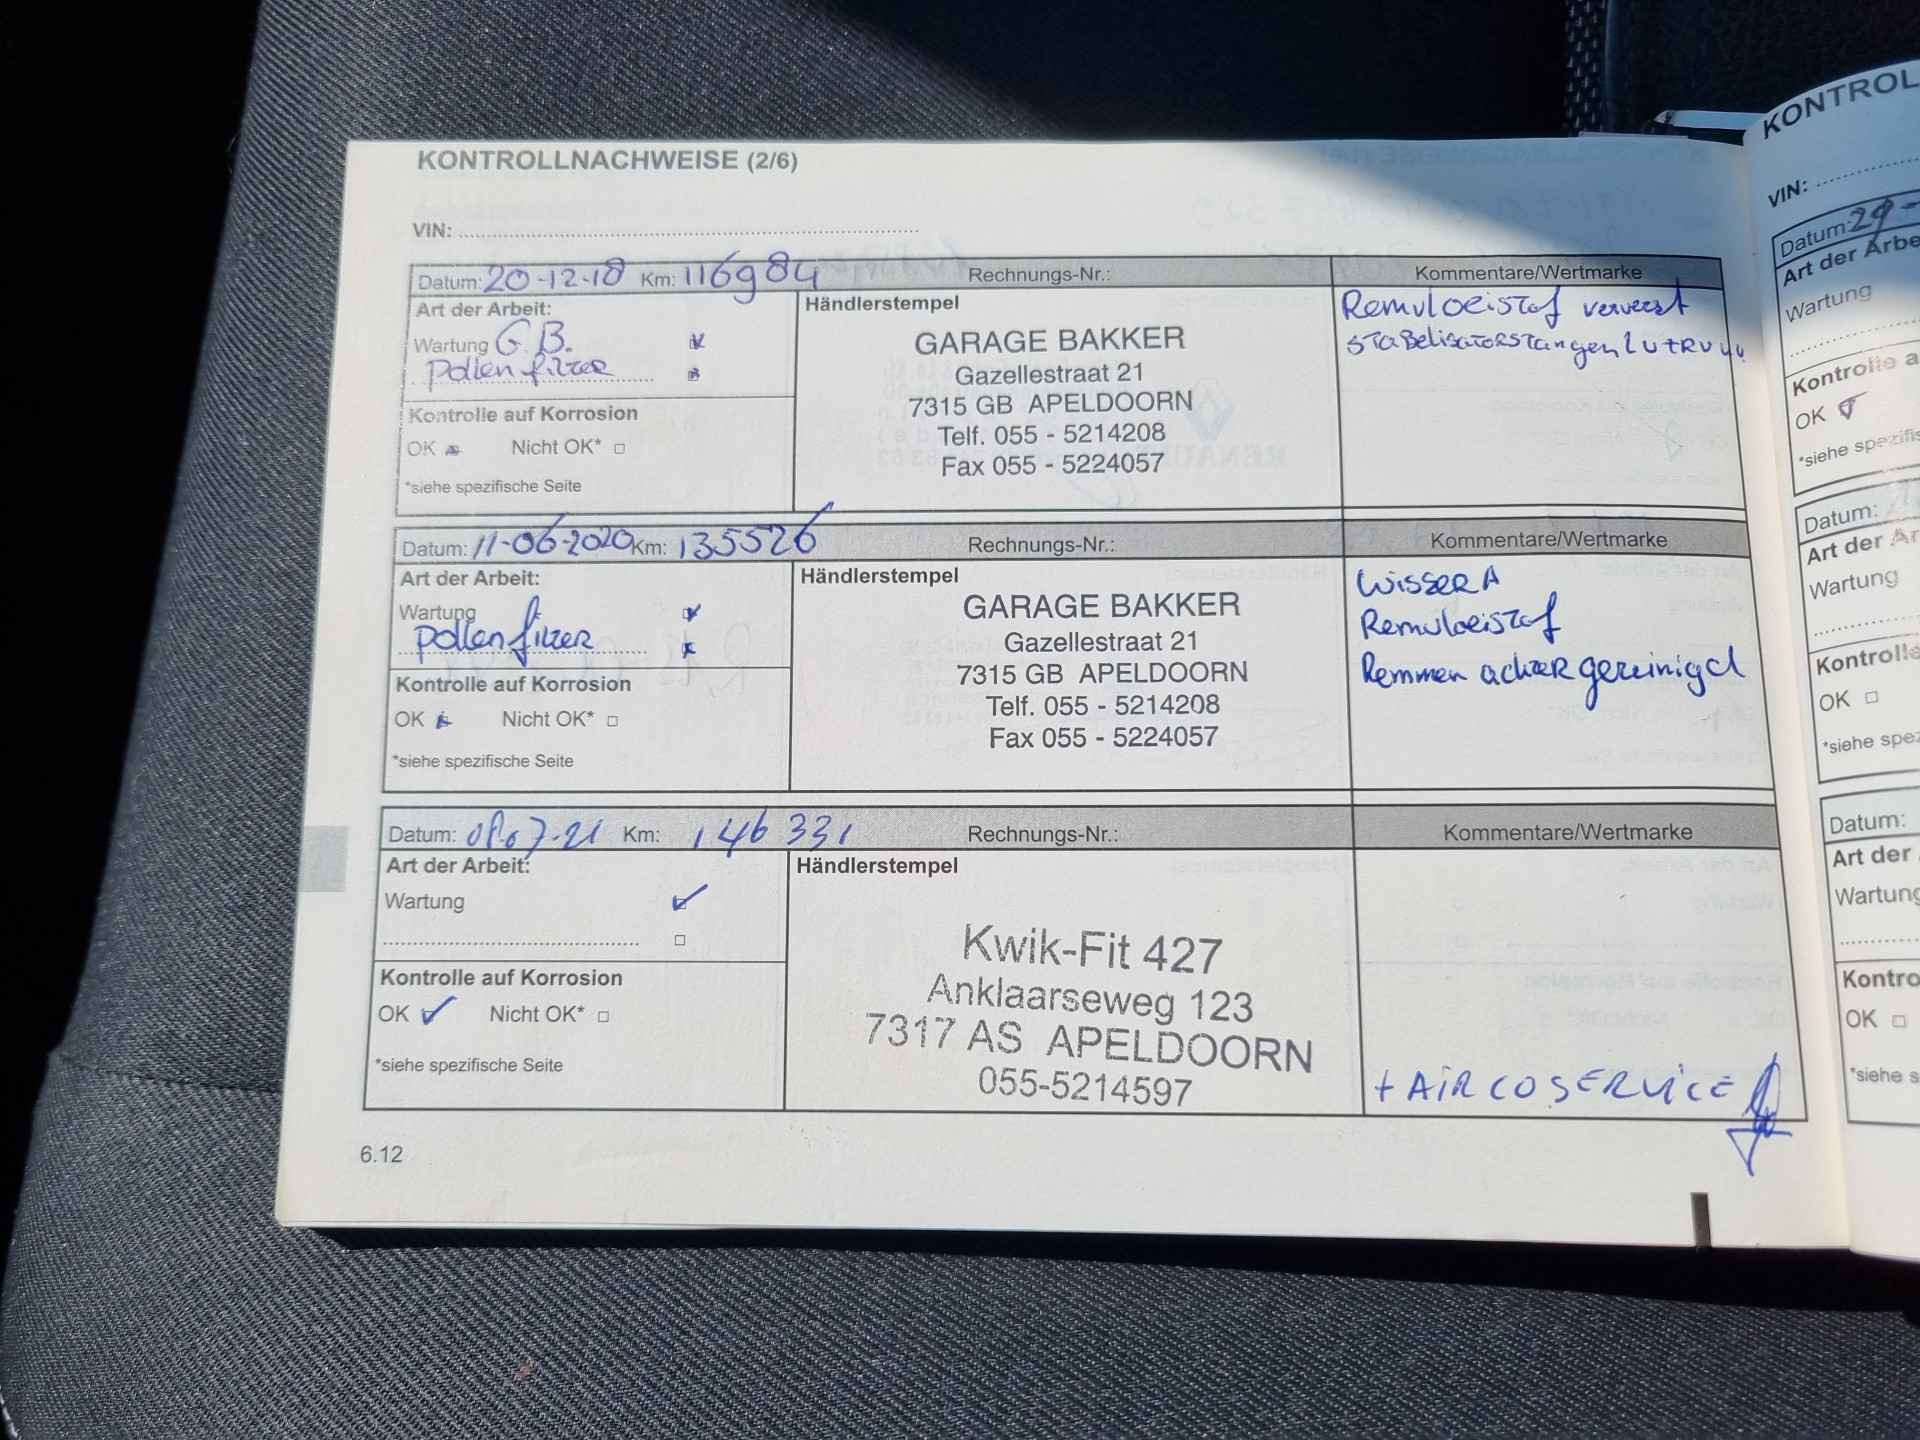 KONTROLLNACHWEISE (2/6)
VIN:
Datum: 20-12-18 Km: 116984 Rechnungs-Nr.: Kommentare/Wertmarke
Art der Arbeit:
Wartung G.B.
pollenfilter
Kontrolle auf Korrosion
OK Nicht OK*
*siehe spezifische Seite
Händlerstempel
GARAGE BAKKER
Gazellestraat 21
7315 GB APELDOORN
Telf. 055 - 5214208
Fax 055 - 5224057
Remvloeistof ververst
STABelisatorstangen
Datum: 11-06-2020 Km: 135526 Rechnungs-Nr.: Kommentare/Wertmarke
Art der Arbeit:
Wartung
pollenfilter
Kontrolle auf Korrosion
OK Nicht OK*
*siehe spezifische Seite
Händlerstempel
GARAGE BAKKER
Gazellestraat 21
7315 GB APELDOORN
Telf. 055 - 5214208
Fax 055 - 5224057
WisserA
Remvloeistof
Remmen achter gereinigd
Datum: Km: 146331 Rechnungs-Nr.: Kommentare/Wertmarke
Art der Arbeit:
Wartung
Kontrolle auf Korrosion
OK Nicht OK*
*siehe spezifische Seite
Händlerstempel
Kwik-Fit 427
Anklaarseweg 123
7317 AS APELDOORN
055-5214597
+ AIRCOSERVICE
6.12
KONTROL
VIN:
Datum: 29-
Art der Arbe
Wartung
Kontrolle a
OK
*siehe spezifis
Datum:
Art der Ar
Wartung
Kontrolle
OK
*siehe spez
Datum:
Art der
Wartung
Kontro
OK
*siehe s